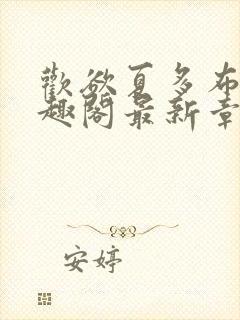 歡欲夏多布
趣閣最新章
安婷